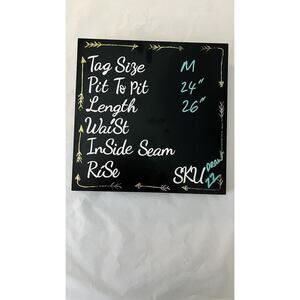 Tag Size M
Pit To Pit 24"
Length 26"
WaiSt
InSide Seam
RiSe SKU DRAW 22